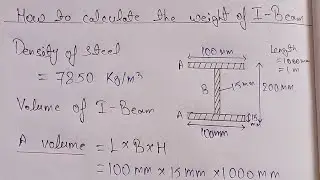 How to calculate the weight of I-Beam
Density of steel
= 7850 Kg/m³
Volume of I-Beam
A volume = L x B x H
= 100 mm x 15 mm x 1000 mm
100 mm
A
B
15 mm
A
100mm
200 mm
Length
= 1000 mm
= 1 m